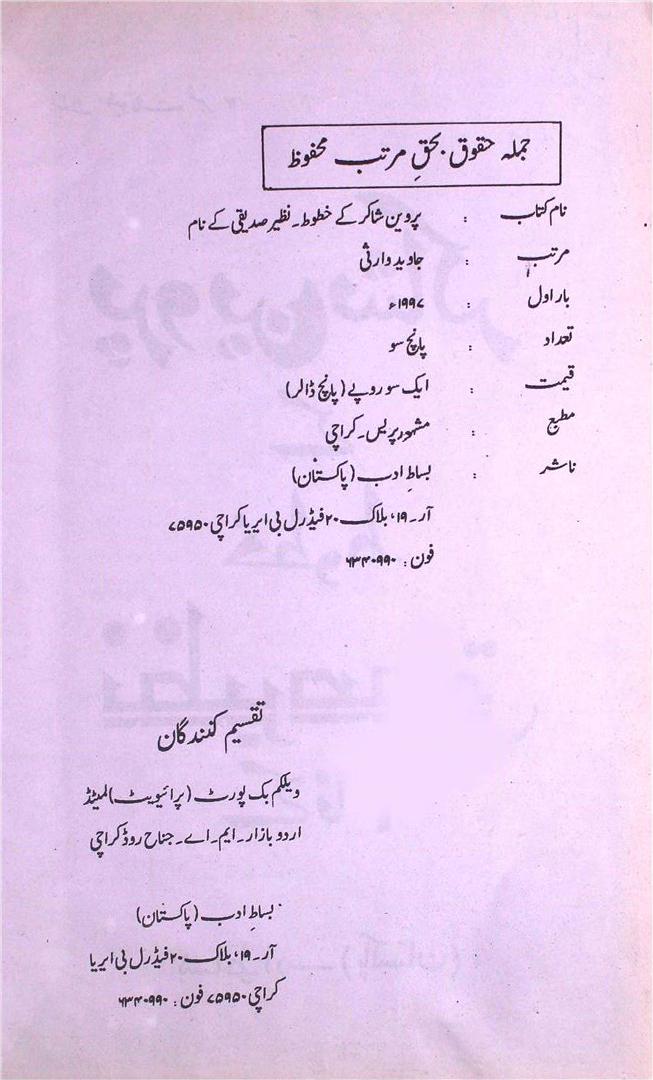 جملہ حقوق بحقِ مرتب محفوظ
نام کتاب : پروین شاکر کے خطوط۔نظیر صدیقی کے نام
مرتب : جاوید وارثی
بار اول : ۱۹۹۷ء
تعداد : پانچ سو
قیمت : ایک سو روپے (پانچ ڈالر)
مطبع : مشہور پریس۔کراچی
ناشر : بساطِ ادب (پاکستان)
آر۔۱۹، بلاک ۲۰ فیڈرل بی ایریا کراچی ۷۵۹۵۰
فون : ۶۳۴۰۹۹۰
تقسیم کنندگان
ویلکم بک پورٹ (پرائیویٹ) لمیٹڈ
اردو بازار۔ایم۔اے۔جناح روڈ کراچی
بساطِ ادب (پاکستان)
آر۔۱۹، بلاک ۲۰ فیڈرل بی ایریا
کراچی ۷۵۹۵۰ فون : ۶۳۴۰۹۹۰